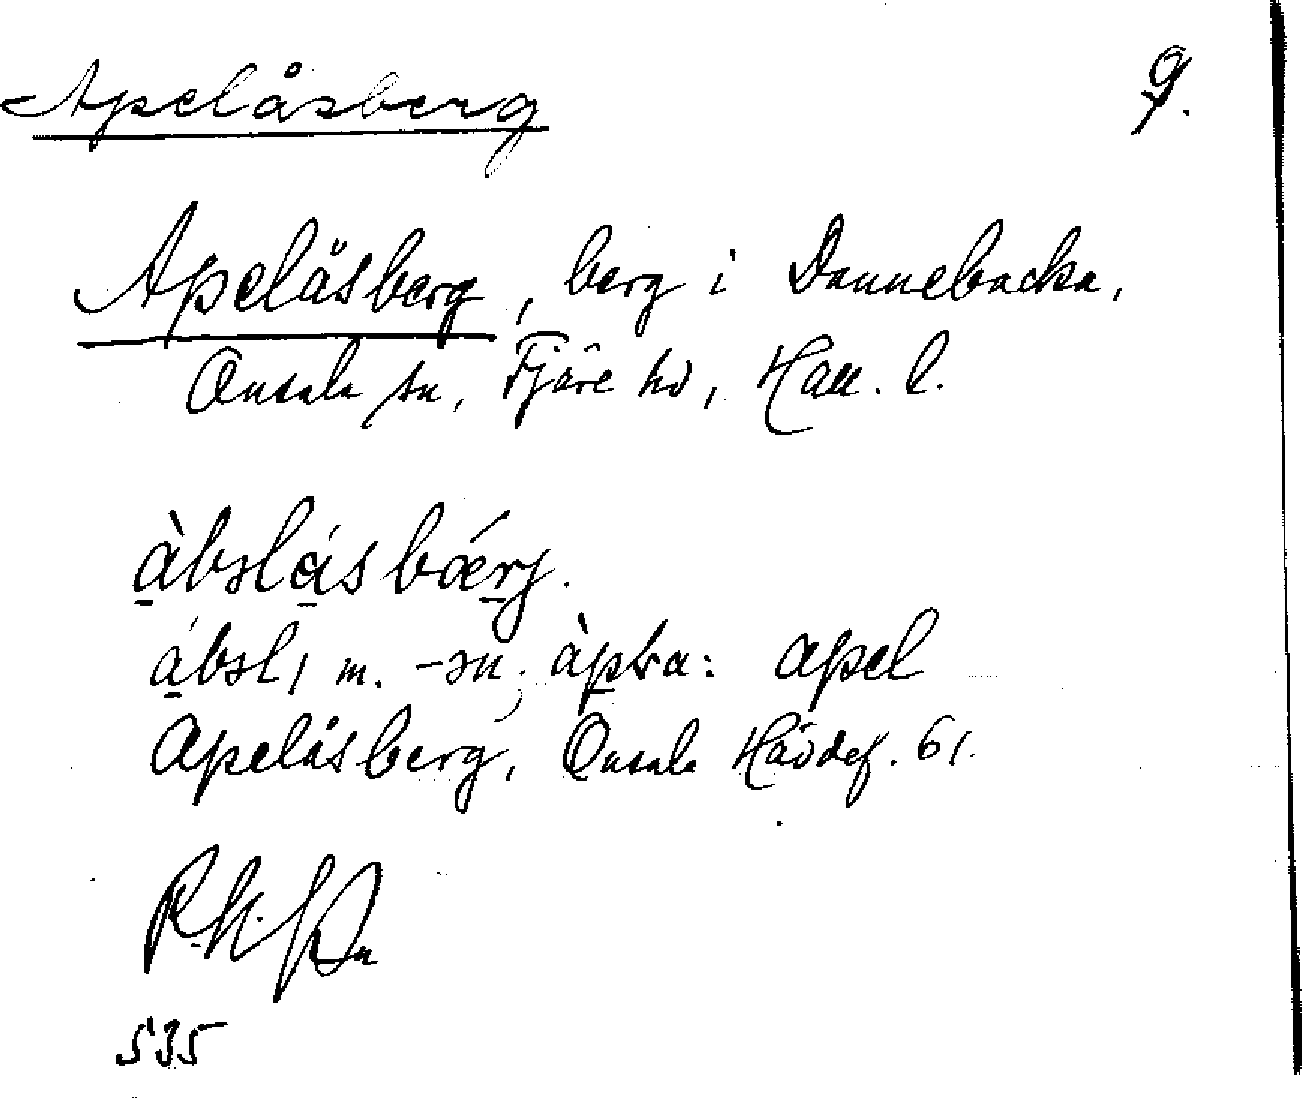 Apelåsberg 9.
Apelåsberg, berg i Dannebacka,
Onsala sn, Fjäre hd, Hall. l.
àbəlåsbǽrj.
ábəl, m. -ən; : apel
Apelåsberg, Onsala Hävdef. 61.
535